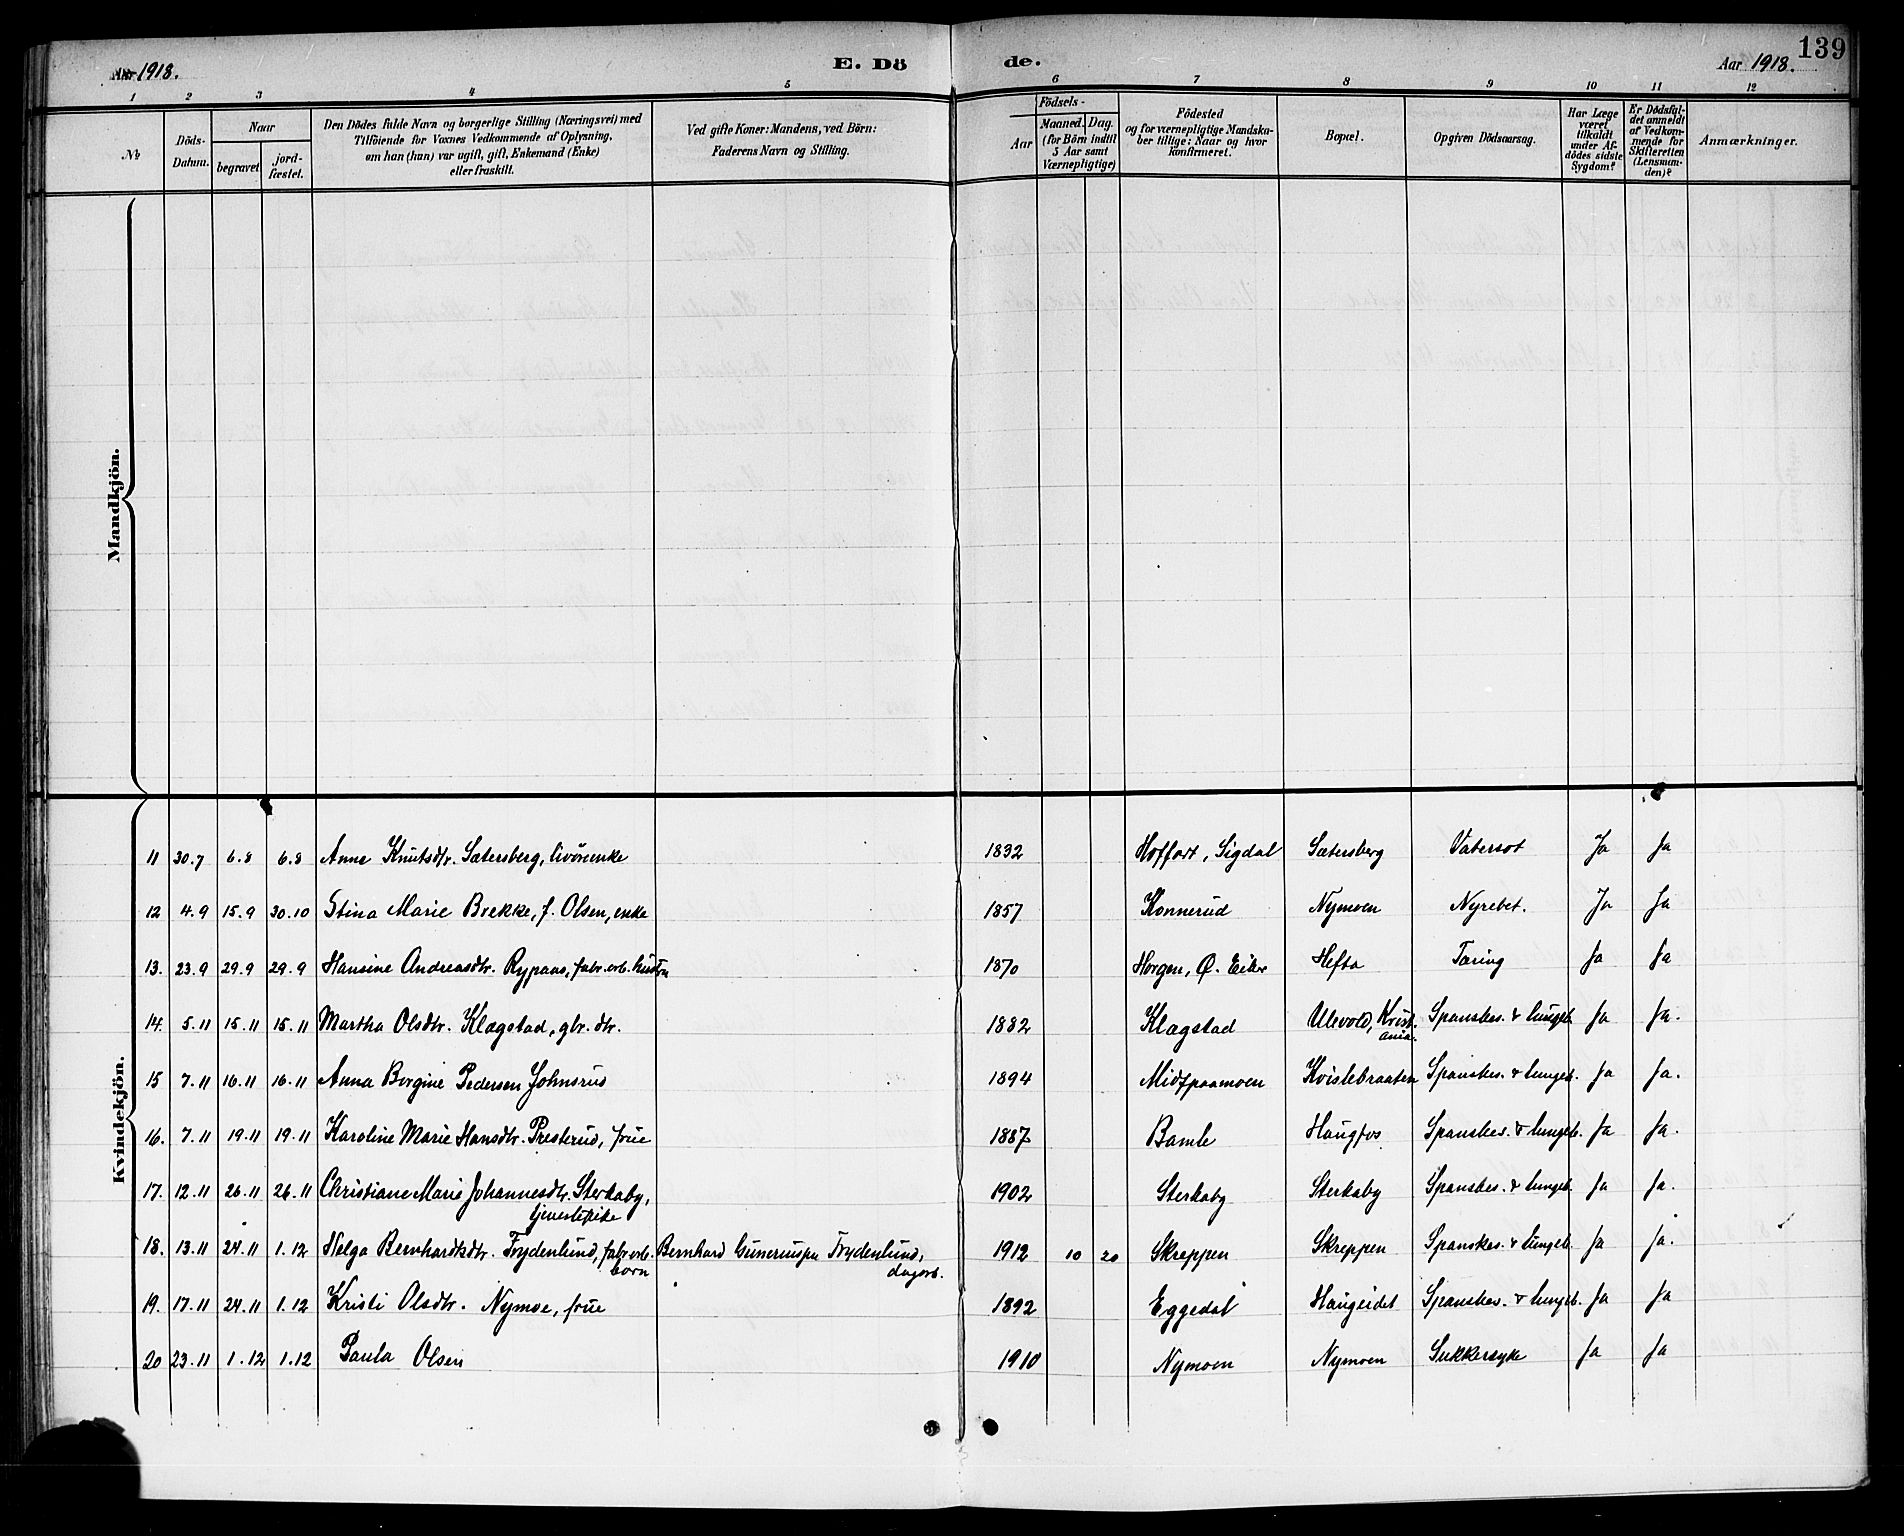 Aar 1918.
E. Dö
de.
Aar 1918.
139
1 2 3 4 5 6 7 8 9 10 11 12
№
Döds-
Datum.
Naar
begravet
jord-
fæstet.
Den Dödes fulde Navn og borgerlige Stilling (Næringsvei) med
Tilföiende for Voxnes Vedkommende af Oplysning,
om han (hun) var ugift, gift, Enkemand (Enke)
eller fraskilt.
Ved gifte Koner: Mandens, ved Börn:
Faderens Navn og Stilling.
Födsels-
Aar
Maaned.
Dag.
(for Börn indtil
5 Aar samt
Værnepligtige)
Födested
og for værnepligtige Mandska-
ber tillige: Naar og hvor
konfirmeret.
Bopæl.
Opgiven Dödsaarsag.
Har Læge
været
tilkaldt
under Af-
dödes sidste
Sygdom?
Er Dödsfal-
det anmeldt
af Vedkom-
mende for
Skifteretten
(Lensman-
den)?
Anmærkninger.
Mandkjön.
Kvindekjön.
11 30.7 6.8 6.8 Anne Knutsdtr. Sætersberg, livøreenke 1832 Hoffart, Sigdal Sætersberg Vatersot Ja Ja
12 4.9 15.9 30.10 Stina Marie Brekke, f. Olsen, enke 1857 Konnerud Nymoen Nyrebet. Ja Ja
13. 23.9 29.9 29.9 Hansine Andreasdtr. Rypaas, fabr.arb. hustru 1870 Horgen, Ø. Eiker Hefta Tæring Ja Ja
14. 5.11 15.11 15.11 Martha Olsdtr. Klægstad, gbr. dtr. 1882 Klægstad Ulevold, Krist-
ania. Spanskes. & lungeb. Ja Ja.
15 7.11 16.11 16.11 Anna Borgine Pedersen Johnsrud 1894 Midtpaamoen Kvistebraaten Spanskes. & lungeb. Ja Ja.
16. 7.11 19.11 19.11 Karoline Marie Hansdtr. Presterud, frue 1887 Bamle Haugfos Spanskes. & lungeb. Ja Ja.
17. 12.11 26.11 26.11 Christiane Marie Johannesdtr. Sterkaby,
tjenestepike 1902 Sterkaby Sterkaby Spanskes. & lungeb. Ja Ja.
18. 13.11 24.11 1.12 Helga Bernhardsdtr. Frydenlund, fabr.arb.
barn Bernhard Frydenlund,
dagarb. 1912 10 20 Skreppen Skreppen Spanskes. & lungeb. Ja Ja.
19. 17.11 24.11 1.12 Kristi Olsdtr. Nymoe, frue 1892 Eggedal Haugeidet Spanskes. & lungeb. Ja Ja
20 23.11 1.12 1.12 Paula Olsen 1910 Nymoen Nymoen Sukkersyke Ja Ja